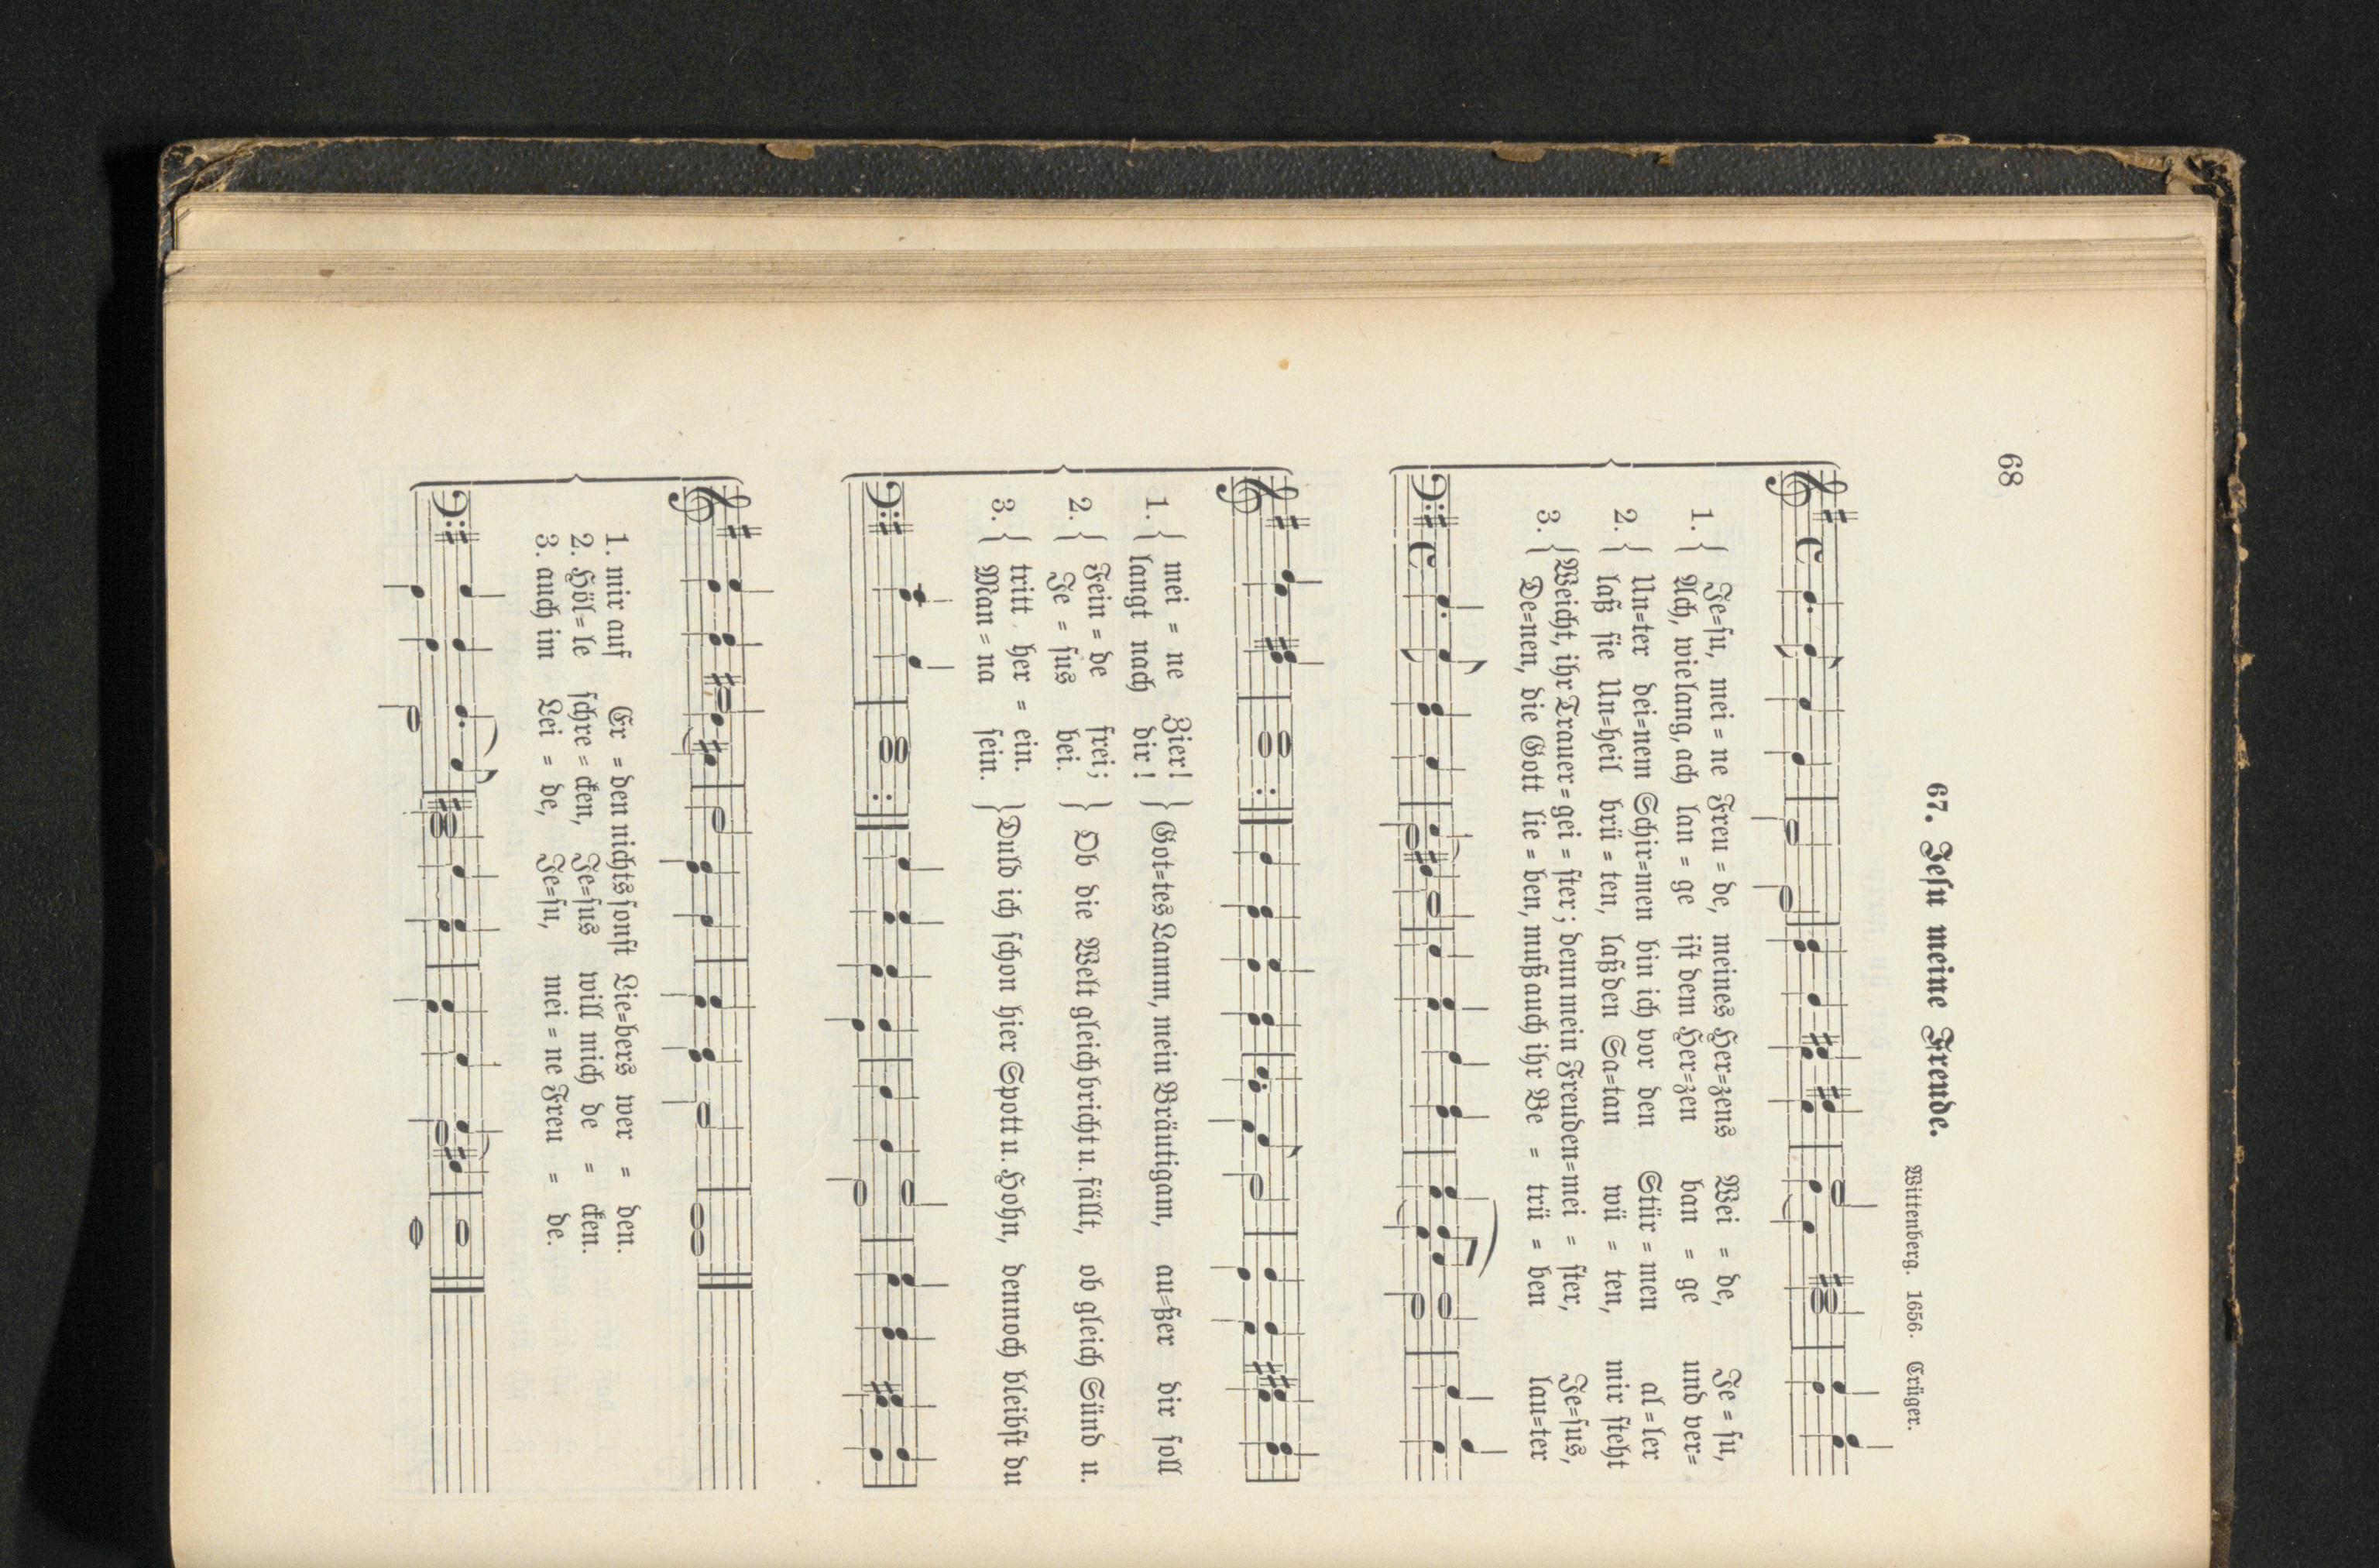 68
67. Jesu meine Freude.
Wittenberg. 1656. Crüger.
1. { Je=su, mei = ne Freu = de, meines Her=zens Wei = de, Je = su,
Ach, wie lang, ach lan = ge ist dem Her=zen ban = ge und ver=
2. { Un=ter dei=nem Schir=men bin ich vor den Stür = men al = ler
laß sie Un=heil brü = ten, laß den Sa=tan wü = ten, mir steht
3. { Weicht, ihr Trauer = gei = ster; denn mein Freuden=mei = ster, Je=sus,
De=nen, die Gott lie = ben, muß auch ihr Be = trü = ben lau=ter
1. { mei = ne Zier! } Got=tes Lamm, mein Bräutigam, au=ßer dir soll
langt nach dir!
2. { Fein = de frei; } Ob die Welt gleich bricht u. fällt, ob gleich Sünd u.
Je = sus bei.
3. { tritt her = ein. } Duld ich schon hier Spott u. Hohn, dennoch bleibst du
Man = na sein.
1. mir auf Er = den nichts sonst Lie=bers wer = den.
2. Höl = le schre = cken, Je=sus will mich de = cken.
3. auch im Lei = de, Je=su, mei = ne Freu = de.